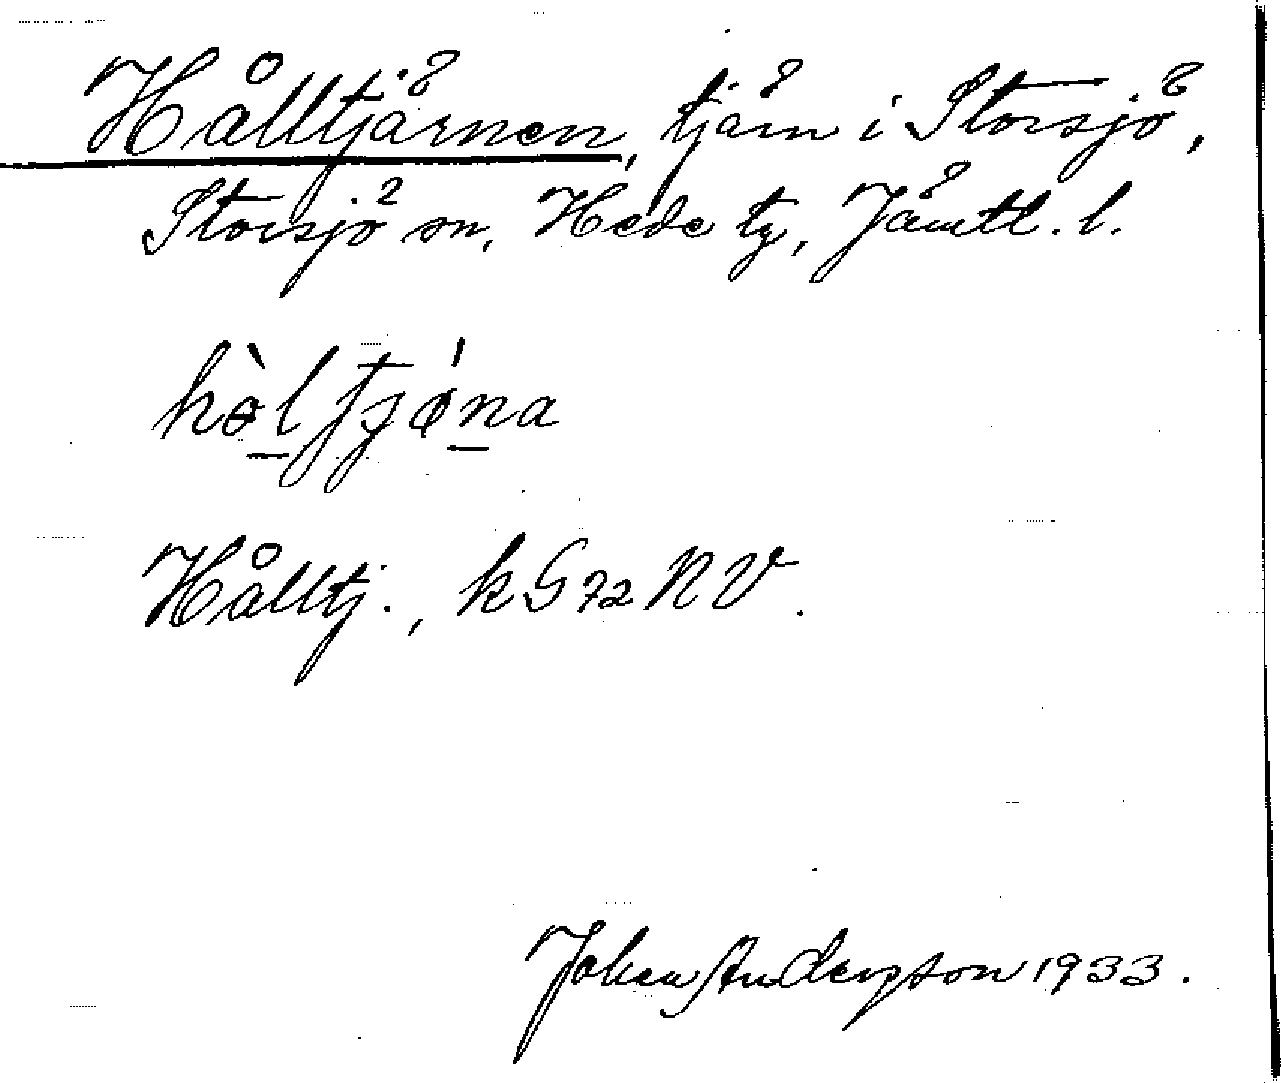 Hålltjärnen, tjärn i Storsjö,
Storsjö sn, Hede tg, Jämtl. l.
hòl tjǿna
Hålltj., k G 72 NV.
Johan Anderson 1933.